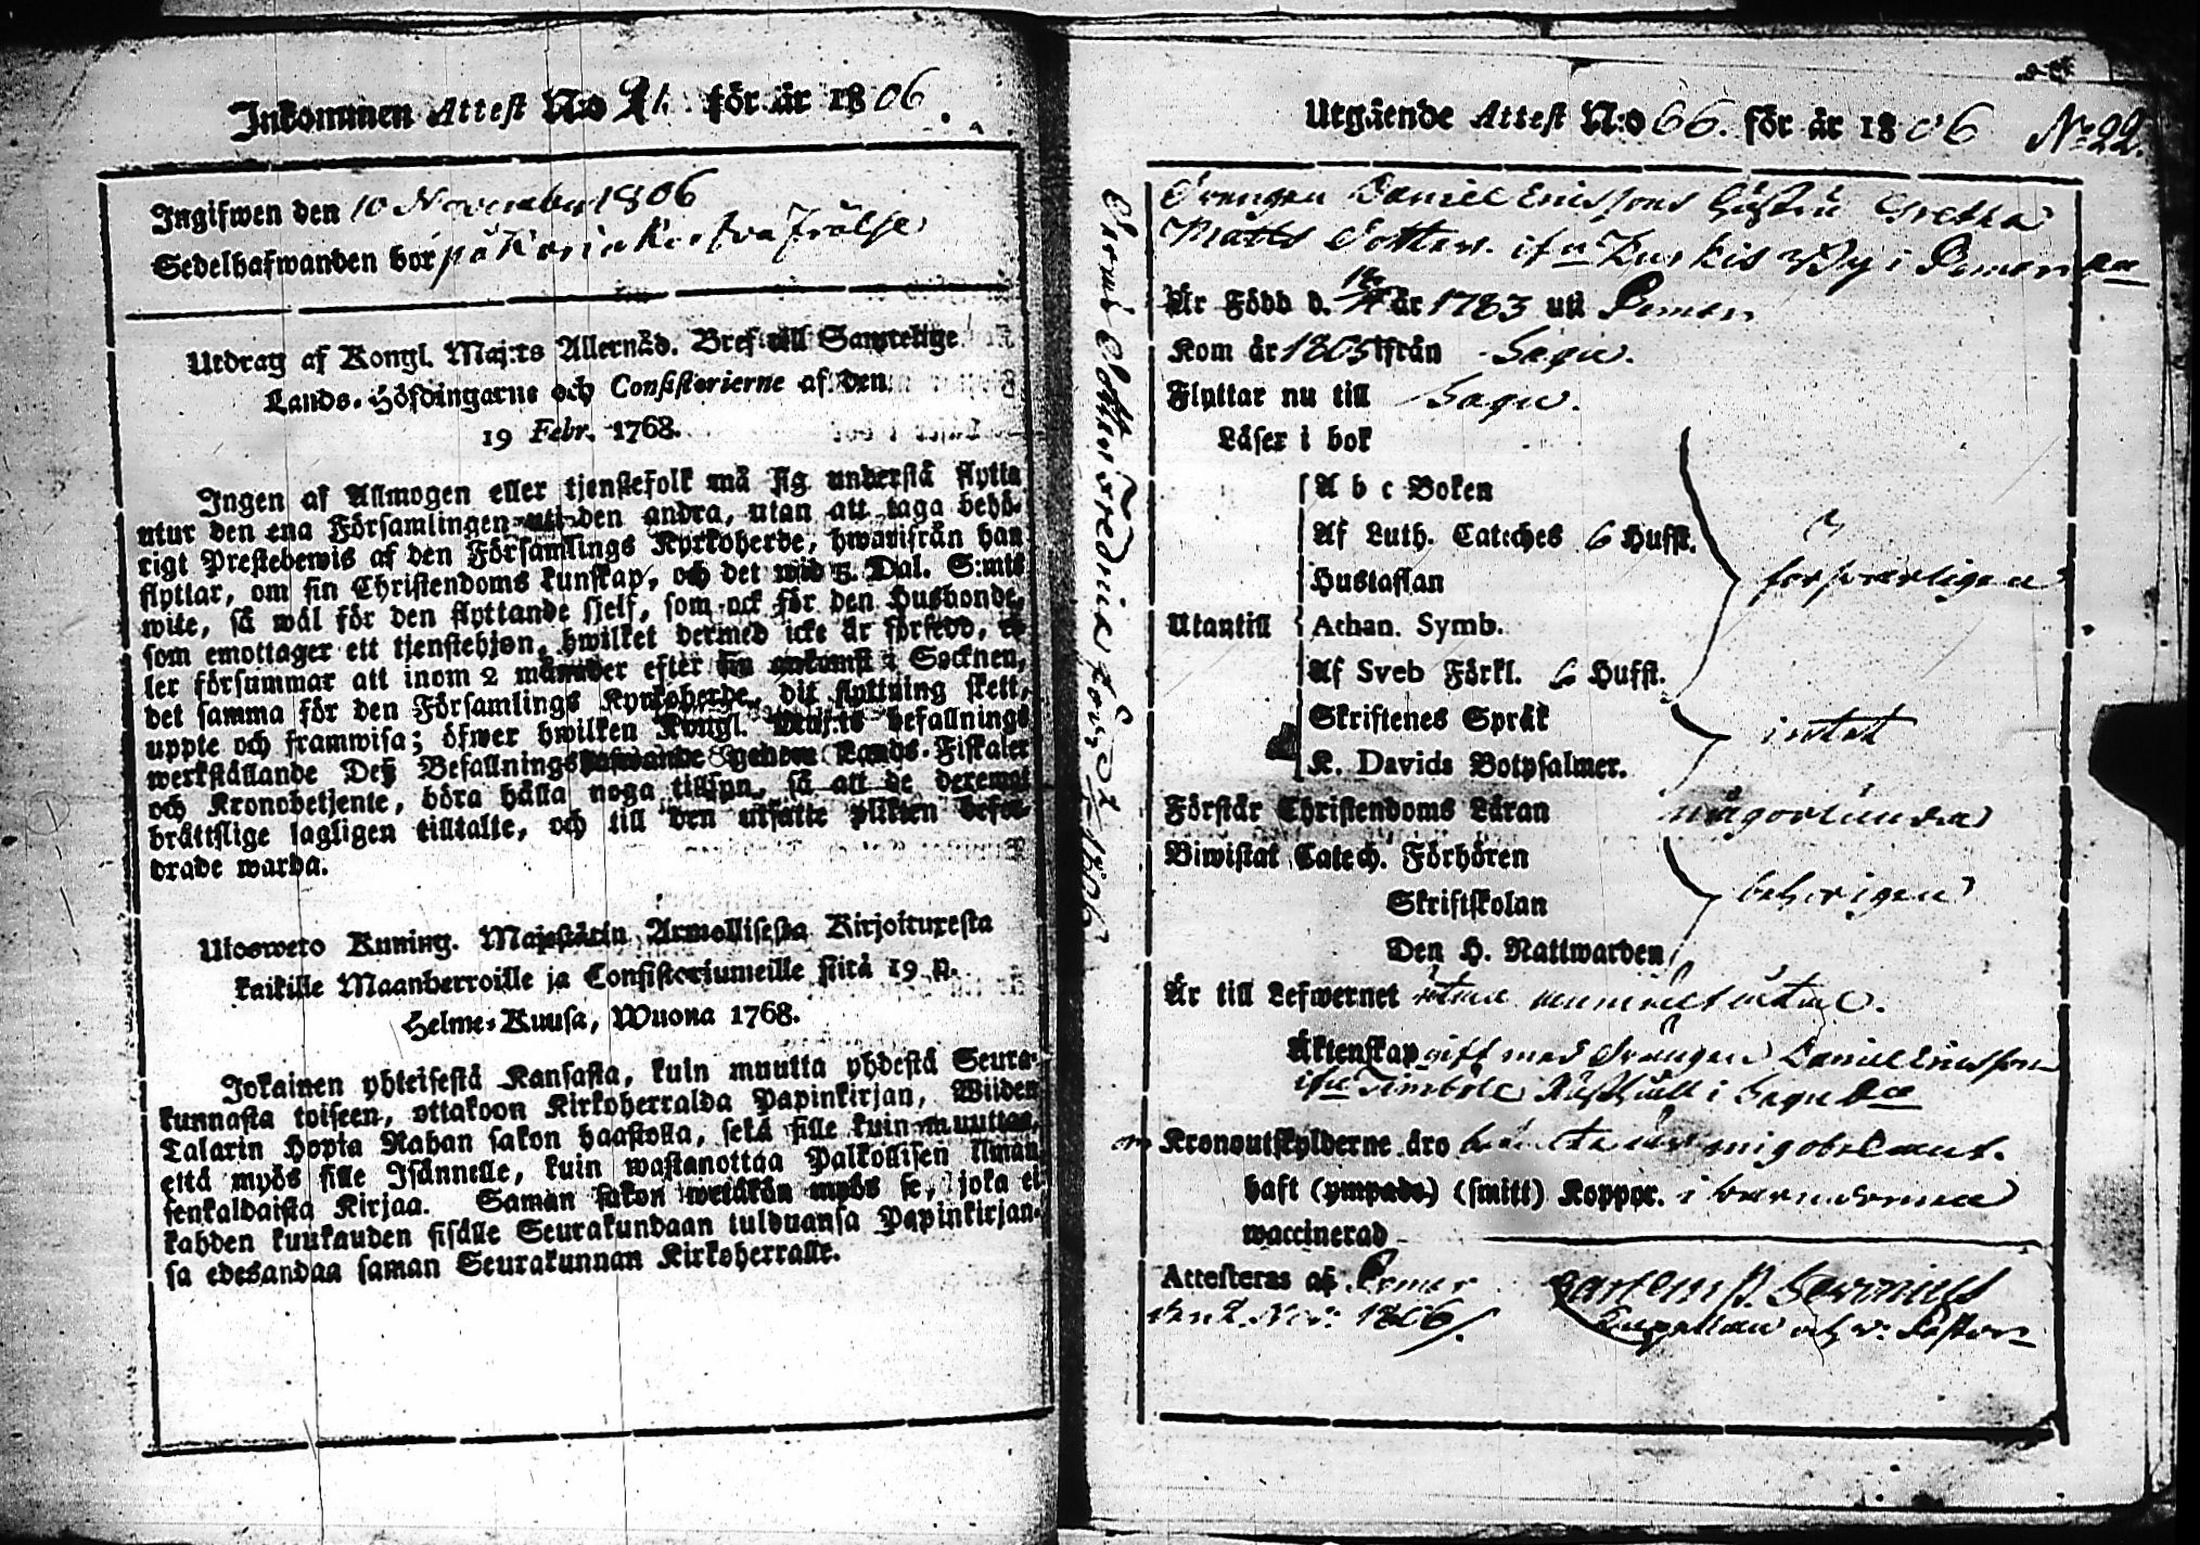 Inkommen Attest N:o 21. för år 1806.
Ingifwen den 10 November 1806
Sedelhafwanden bor på Frälse
Utdrag af Kongl. Maj:ts Allernåd. Bref till Samtelige
Lands-Höfdingarne och Consistorierne af den
19 Febr. 1768.
Ingen af Allmogen eller tjenstefolk må sig understå flytta
utur den ena Församlingen uti den andra, utan att taga behö-
rigt Prestebewis af den Församlings Kyrkoherde, hwarifrån han
flyttar, om sin Christendoms kunskap, och det wid 5 Dal. S:mts
wite, så wäl för den flyttande sjelf, som ock för den Husbonde,
som emottager ett tjenstehjon, hwilket dermed icke är försedd, el-
ler försummar att inom 2 månader efter sin ankomst i Socknen,
det samma för den Församlings Kyrkoherde, dit flyttning skett,
uppte och framwisa; öfwer hwilken Kongl. Maj:ts befallnings
werkställande Deß Befallningshafwande genom Lands-Fiskaler
och Kronobetjente, böra hålla noga tillsyn, så att de deremot
bråttslige lagligen tilltalte, och till den utsatte plikten befor-
drade warda.
Ulosweto Kuning. Majestätin Armollisesta Kirjoituxesta
kaikille Maanherroille ja Consistoriumeille siitä 19 p.
Helme-Kuusa, Wuona 1768.
Jokainen yhteisestä Kansasta, kuin muutta yhdestä Seura-
kunnasta toiseen, ottakoon Kirkoherralda Papinkirjan, Wiiden
Talarin Hopia Rahan sakon haastolla, sekä sille kuin muuttaa,
että myös sille Isännelle, kuin wastanottaa Palkollisen ilman
senkaldaista Kirjaa. Saman sakon wetäkön myös se, joka ei
kahden kuukauden sisälle Seurakundaan tulduansa Papinkirjan-
sa edesandaa saman Seurakunnan Kirkoherralle.
Utgående Attest N:o 66. för år 1806 No 22.
Drengen Daniel Ericssons Hustru Gretha
Matts Dotter. ifrn By i Pemar
Är Född d. år 1783 uti Pemar
Kom år 1805 ifrån Sagu.
Flyttar nu till Sagu.
Läser i bok
A b c Boken
Af Luth. Cateches 6 Hufst.
Hustaflan
försvarligen
Utantill Athan. Symb.
Af Sveb Förkl. 6 Hufst.
Skriftenes Språk
intet
K. Davids Botpsalmer.
Förstår Christendoms Läran någorlunda
Biwistat Catech. Förhören
Skriftskolan
behörigen
Den H. Nattwarden
Är till Lefwernet
Äktenskap gift med Drängen Daniel Ericsson
ifrn i Sagu
Kronoutskylderne äro mig obekant.
haft (ympade) (smitt) Koppor. i barndomen
waccinerad
Attesteras af Pemar
den 2. Nov: 1806
Capellan och v: Pastor